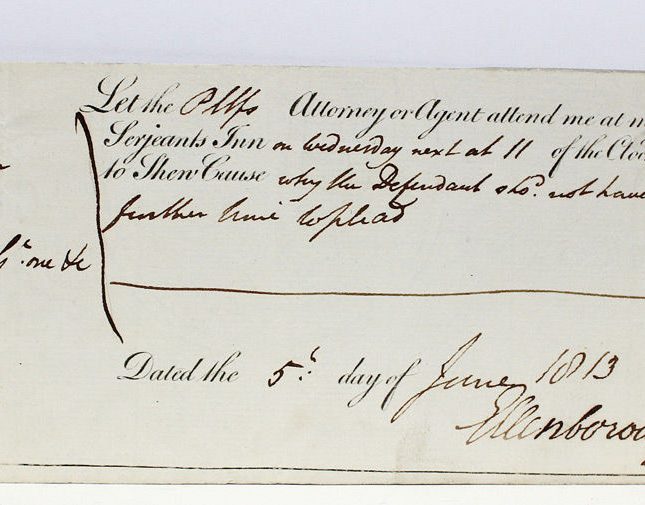 Let the Pltfs Attorney or Agent attend me at m
Serjeants Inn on Wednesday next at 11 of the Cloc
to Shew Cause why the Defendant sho.d not have
further time to plead
one &c
Dated the 5th day of June 1813
Ellenborou